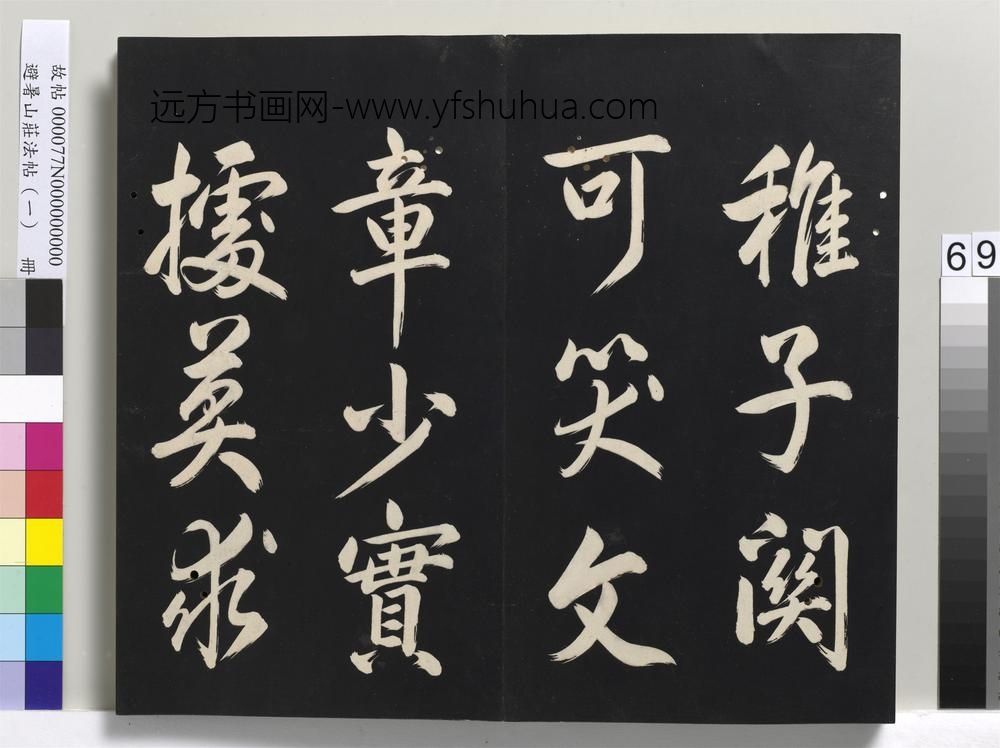 远方书画网-www.yfshuhua.com
稚子関
可笑文
章少實
據莫求
故帖 000077N000000000
避暑山莊法帖（一） 冊
69